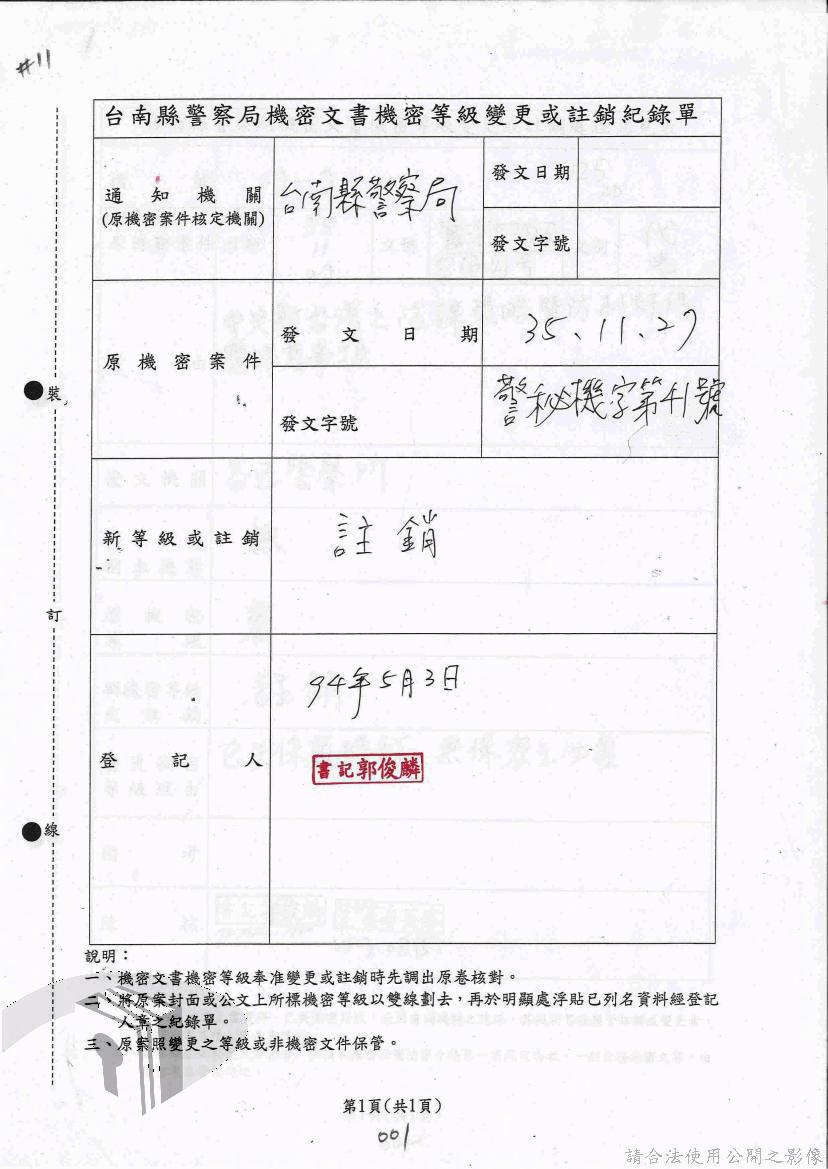 #11
台南縣警察局機密文書機密等級變更或註銷紀錄單
通知機關
(原機密案件核定機關)
台南縣警察局
發文日期
發文字號
原機密案件
發文日期
35、11、27
發文字號
警秘機字第41號
新等級或註銷
註銷
登記人
94年5月3日
書記郭俊麟
裝
訂
線
說明：
一、機密文書機密等級奉准變更或註銷時先調出原卷核對。
二、將原案封面或公文上所標機密等級以雙線劃去，再於明顯處浮貼已列名資料經登記
人章之紀錄單。
三、原案照變更之等級或非機密文件保管。
第1頁(共1頁)
001
請合法使用公開之影像